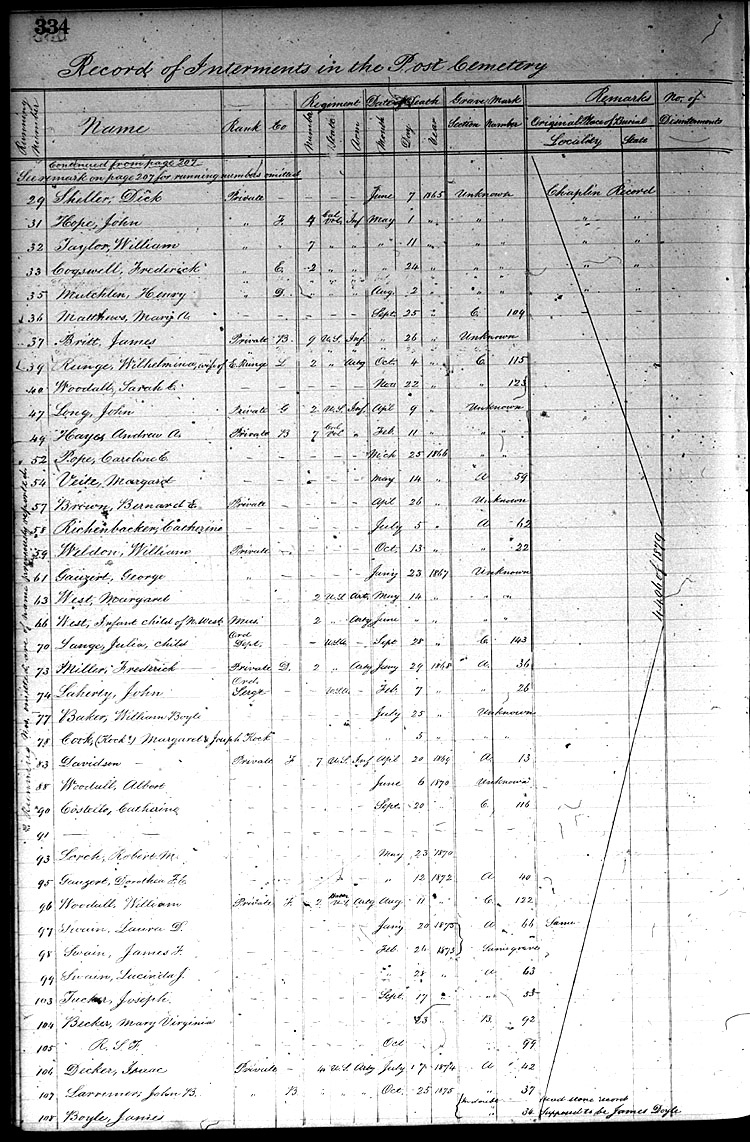 334
Record of Interments in the Post Cemetery
Running Number Name Rank Co Regiment Number State Arm Date of Death Month Day Year Grave Mark Section Number Remarks Original Place of Burial Locality State No. of Disinterments
Continued from page 207
See remark on page 207 for running numbers omitted
29 Sheller, Dick Private - - - - June 7 1865 Unknown Chaplin Record
31 Hope, John " F. 4 Vols. Inf May 1 " " " " "
32 Taylor, William " " 7 " " " 11 " " " " "
33 Cogswell, Frederick " E. 2 " " " 24 " " " " "
35 Mutchlen, Henry " D. " " " Aug. 2 " " " " "
36 Matthews, Mary A. - - - - - Sept. 25 " C. 109
37 Britt, James Private B. 9 U.S. Inf. " 26 " Unknown
39 Runge, Wilhelmina, wife of E. Runge L 2 " Arty Oct. 4 " C. 115
40 Woodall, Sarah C. - - - - - Nov. 22 " " 123
47 Long, John Private G 2 U.S. Inf. Apl 9 " Unknown
49 Hayes Andrew A. Private B 7 Vol " Feb. 11 " " "
52 Pope, Caroline C. - - - - - Mich 25 1866 " "
54 Veite, Margard - - - - - May 14 " A 59
57 Brown, Bernard E. Private - - - - Apl. 26 " Unknown
58 Richenbacker, Catherine - - - - - July 5 " A 62
59 Weldon, William Private - - - - Oct. 13 " " 22
61 Gauzert, George " - - - - Jany 23 1867 Unknown
63 West, Margaret - - 2 U.S. Arty May 14 " " "
66 West, Infant child of N. West Mus. 2 " Arty June " " " "
70 Lange, Julia, child Ord Dept. - U.S.A. Sept 28 " C. 143
73 Miller, Frederick Private D. 2 " Arty Jany 29 1868 A. 36
74 Laherty, John Ord. Sergt - - U.S.A. - Feb. 7 " " 26
77 Baker, William Boyle - - - - - July 25 " Unknown
78 Cook, (Kock?) Margaret & Joseph Kock - - - - 5 " " "
83 Davidson - Private F. 7 U.S. Inf April 20 1869 A. 13
88 Woodall, Albert - - - - - June 6 1870 Unknown
90 Costello, Catharine - - - - - Sept. 20 C. 116
91 - - - - - - - - - - -
93 Lorch, Robert M. - - - - - May 23 1870 - -
95 Gauzert, Dorothea F. C. - - - - - " 12 1872 A 40
96 Woodall, William Private F. 2 U.S. Arty Aug 11 " C. 122
97 Swain, Laura D. - - - - - Jany 20 1873 A 66 Same
98 Swain, James F. - - - - - Feb. 26 1873 Same grave
99 Swain, Lucinda J. - - - - - " 28 " A 63
103 Tucker, Joseph. - - - - - Sept. 17 " " 53
104 Becker, Mary Virginia - - - - - " 23 B. 92
105 R. S. F. - - - - - Oct - - 99
106 Decker, Isaac Private - 4 U.S. Arty July 17 1874 A 42
107 Larrimer, John B. " B " " " Oct. 25 1875 " 37
108 Boyle, James " 36 Head stone record
Supposed to be James Doyle